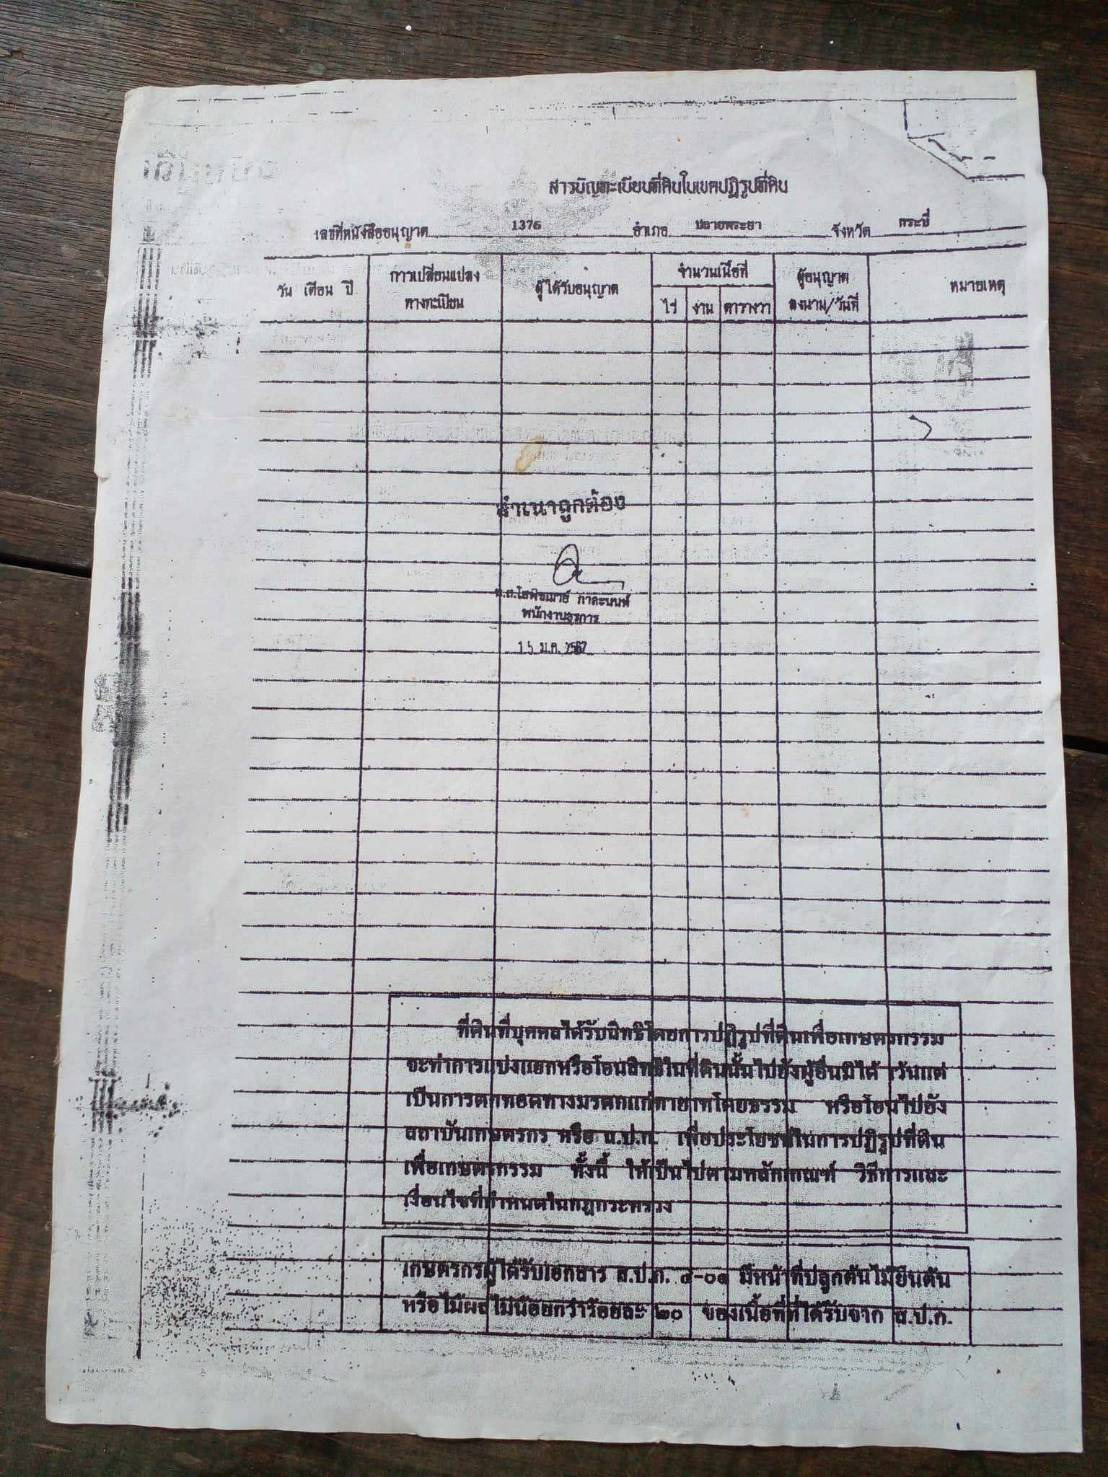 สารบัญทะเบียนที่ดินในเขตปฏิรูปที่ดิน
เลขที่หนังสืออนุญาต 1376 อำเภอ ปลายพระยา จังหวัด กระบี่
วัน เดือน ปี การเปลี่ยนแปลงทางทะเบียน ผู้ได้รับอนุญาต จำนวนเนื้อที่ ผู้อนุญาตลงนาม/วันที่ หมายเหตุ
ไร่ งาน ตารางวา
สำเนาถูกต้อง
พนักงานธุรการ
15 ม.ค. 2567
ที่ดินที่บุคคลได้รับสิทธิโดยการปฏิรูปที่ดินเพื่อเกษตรกรรม
จะทำการแบ่งแยกหรือโอนสิทธิในที่ดินนั้นไปยังผู้อื่นมิได้ เว้นแต่
เป็นการตกทอดทางมรดกแก่ทายาทโดยธรรม หรือโอนไปยัง
สถาบันเกษตรกร หรือ ส.ป.ก. เพื่อประโยชน์ในการปฏิรูปที่ดิน
เพื่อเกษตรกรรม ทั้งนี้ ให้เป็นไปตามหลักเกณฑ์ วิธีการและ
เงื่อนไขที่กำหนดในกฎกระทรวง
เกษตรกรผู้ได้รับเอกสาร ส.ป.ก. ๔-๐๑ มีหน้าที่ปลูกต้นไม้ยืนต้น
หรือไม้ผลไม่น้อยกว่าร้อยละ ๒๐ ของเนื้อที่ที่ได้รับจาก ส.ป.ก.